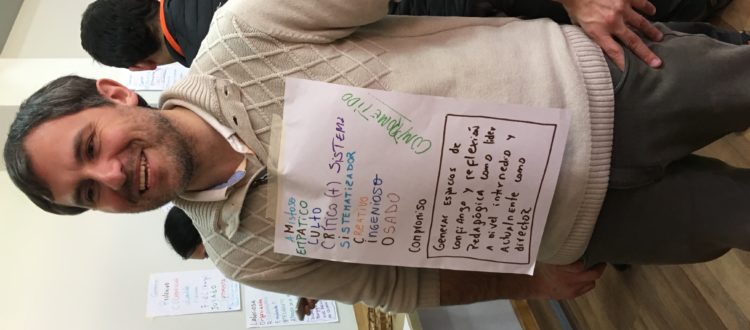 AMISTOSO
EMPÁTICO
CULTO
CRÍTICO (+) SISTEMA
SISTEMATIZADOR
CREATIVO
INGENIOSO
OSADO
COMPROMETIDO
Compromiso
Generar Espacios de
confianza y reflexión
Pedagógica como líder
a nivel intermedio y
Actualmente como
director